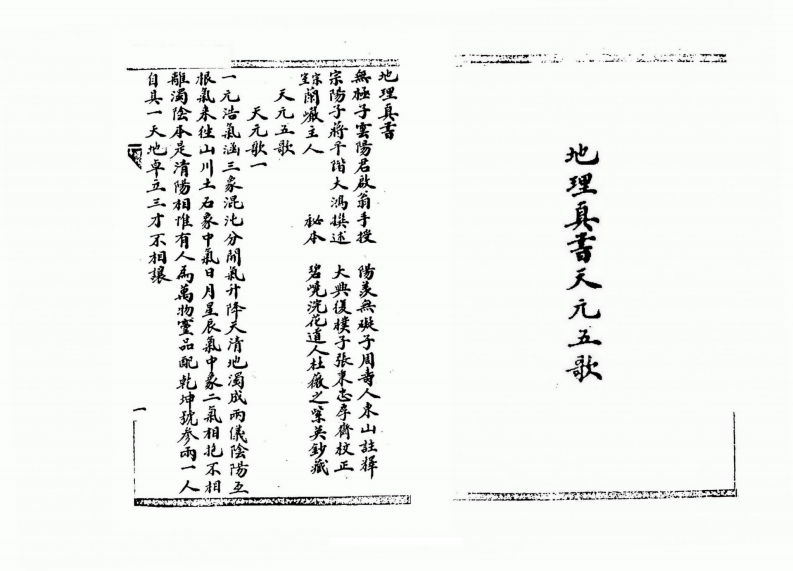 地理真書天元五歌
地理真書
無極子雲陽君啟翁手授 陽羨無礙子周壽人東山註釋
宗陽子蔣平階大鴻撰述 大興復樸子張東志序齋校正
宗室蘭巖主人 秘本 碧曉浣花道人杜薇之翠英鈔藏
天元五歌
天元歌一
一元浩氣涵三象混沌分開氣升降天清地濁成兩儀陰陽互
根氣來往山川土石象中氣日月星辰氣中象二氣相抱不相
離濁陰本是清陽相惟有人為萬物靈品配乾坤號參兩一人
自具一天地卓立三才不相讓
一